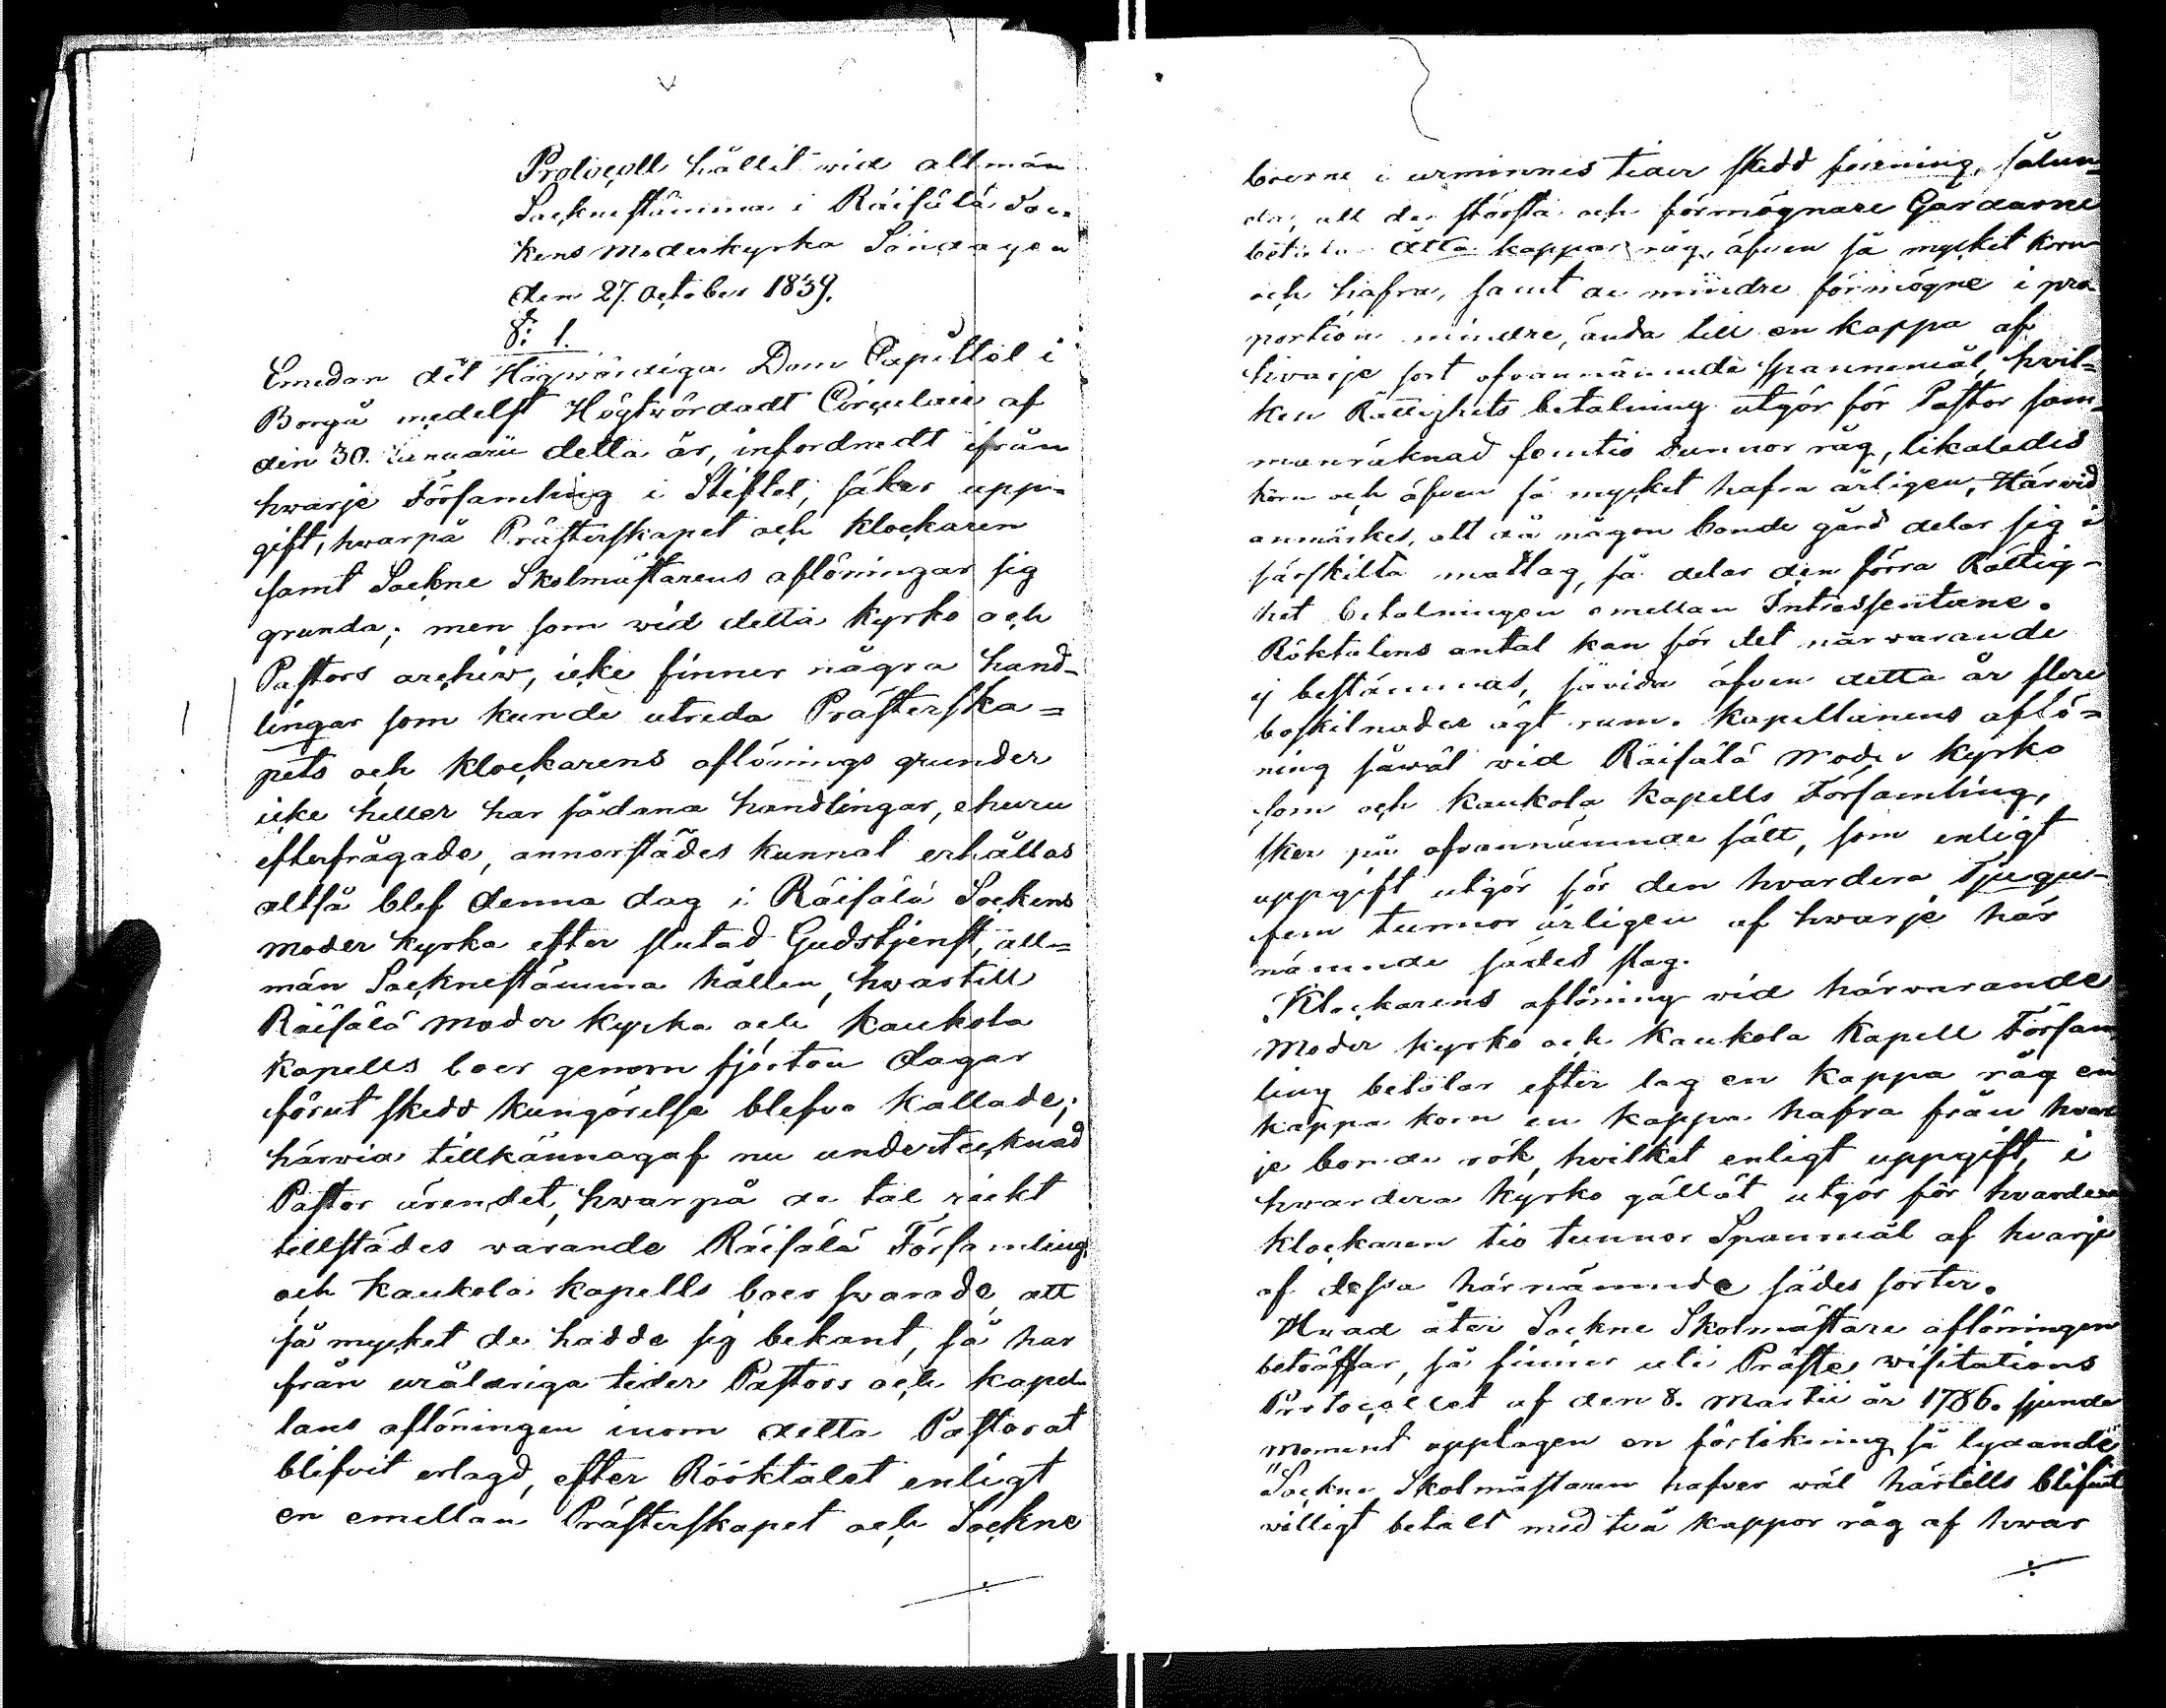 Protocoll hållit wid allmän
Sockne stämma i Räisälä Soc-
kens Moderkyrka Söndagen
den 27. october 1839.
§: 1.
Emedan det Högwördiga Dom Capittel i
Borgå medelst Högtwördadt Circulair af
den 30. Januarii detta år, infordradt ifrån
hwarje Församling i Stiftet, säker upp-
gift, hwarpå Prästerskapet och klockaren
samt Sockne Skolmästarens aflöningar sig
grunda; men som wid detta kyrko och
Pastors archiw, icke finner några hand-
lingar som kunde utreda Prästerska-
pets och klockarens aflönings grunder
icke heller har sådana handlingar, ehuru
efterfrågade, annorstädes kunnat erhållas
altså blef denna dag i Räisälä Sockens
moder kyrka efter slutad Gudstjenst, all-
män Socknestämma hållen, hwartill
Räisälä moder kyrka och Kaukola
kapells boer genom fjorton dagar
förut skedd kungörelse blefvo kallade;
härwid tillkännagaf nu undertecknad
Pastor ärendet, hwarpå de talrickt
tillstädes warande Räisälä Församling
och Kaukola kapells boer swarade, att
så mycket de hadde sig bekant, så har
från uråldriga tider Pastors och kapel-
lans aflöningen inom detta Pastorat
blifvit erlagd, efter Rööktalet enligt
en emellan Prästerskapet och Sockne
boerne i urminnes tider skedd förening, sålun-
da, att de största och förmögnare Gårdarne
betala åtta kappar råg, äfven så mycket korn
och hafra, samt de mindre förmögne i pro-
portion mindre, ända till en kappa af
hvarje sort ofvannämnde spannemål, hvil-
ken Rättighets betalning utgör för Pastor sam-
manräknad femtio tunnor råg, likaledes
korn och äfven så mycket hafra årligen. Härvid
anmärkes, att då någon bonde gård delar sig i
särskilta matlag, så delar den förra Rättig-
het betalningen emellan Intressenterne.
Röktalens antal kan för det närwarande
ej bestämmas, såvida äfven detta år flere
boskilnader ägt rum. Kapellanens aflö-
ning såwäl wid Räisälä Moder kyrko
som och Kaukola kapells Församling,
sker på ofvannämnde sätt, som enligt
uppgift utgör för den hvardera Tjugu-
fem tunnor årligen af hwarje här
nämnde sädes slag.
Klockarens aflöning wid härwarande
Moder kyrko och Kaukola Kapell Försam
ling betalar efter lag en kappa råg en
kappa korn en kappa hafra från hvar
je bonde rök, hvilket enligt uppgift, i
hwardera kyrko gället utgör för hvardera
klockaren tio tunnor Spanmål af hvarje
af dessa härnämnde sädes sorter.
Hvad åter Sockne Skolmästare aflöningen
beträffar, så finnes uti Prästerwisitations
Protocollet af den 8. Martii år 1786. sjunde
Moment upptagen en förlikning så lydande
"Sockne Skolmästaren hafver wäl härtills blifvit
willigt betalt med två kappor råg af hwar